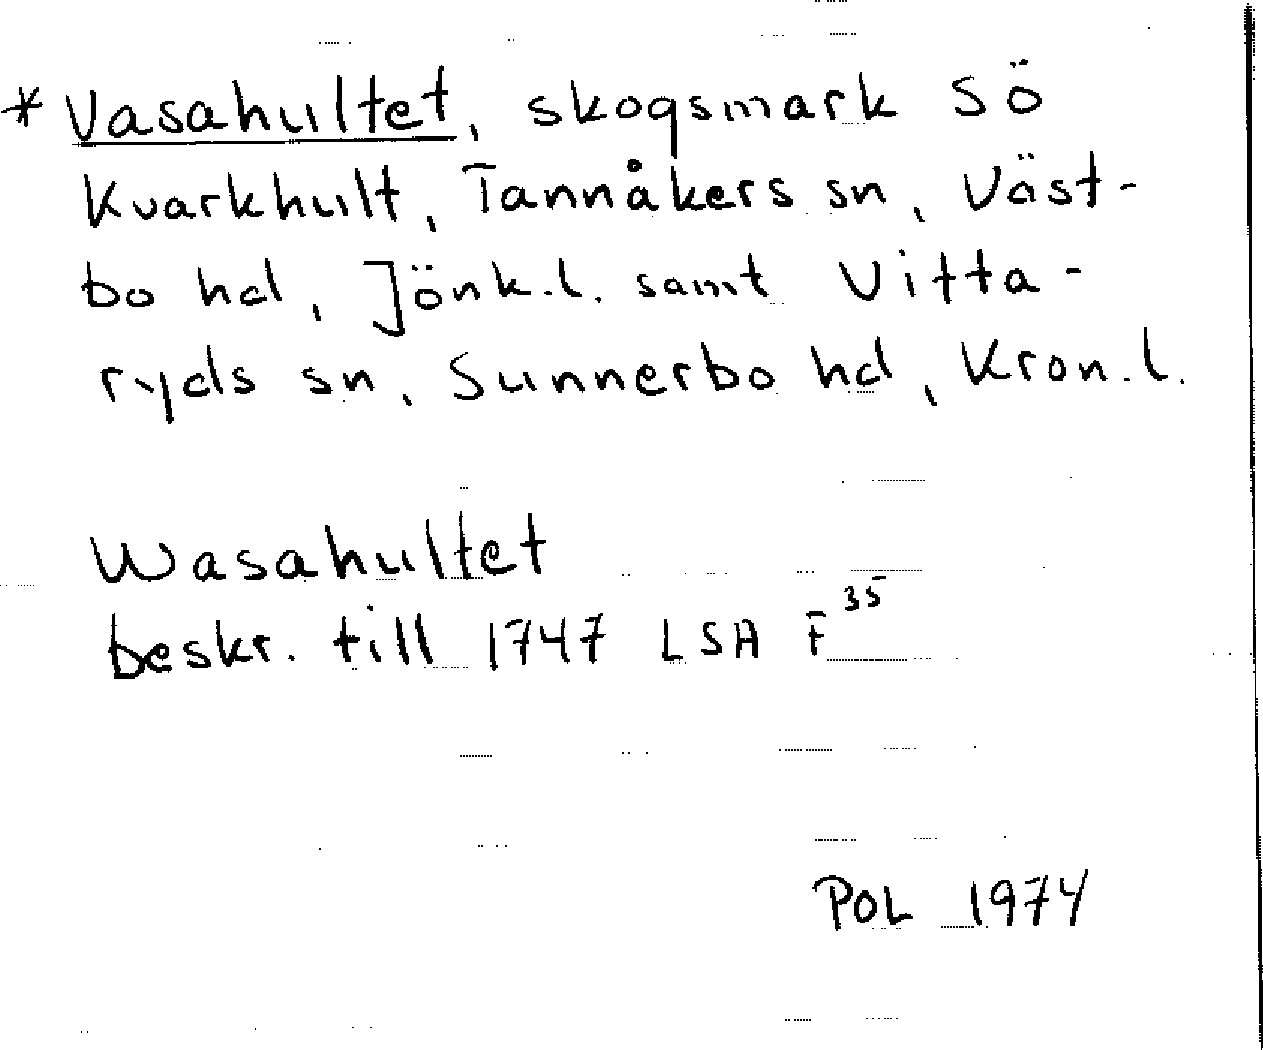 * Vasahultet, skogsmark sö
Kvarkhult, Tannåkers sn, Väst-
bo hd, Jönk.l. samt Vitta-
ryds sn, Sunnerbo hd, Kron.l.
Wasahultet
beskr. till 1747 LSA F 35
POL 1974